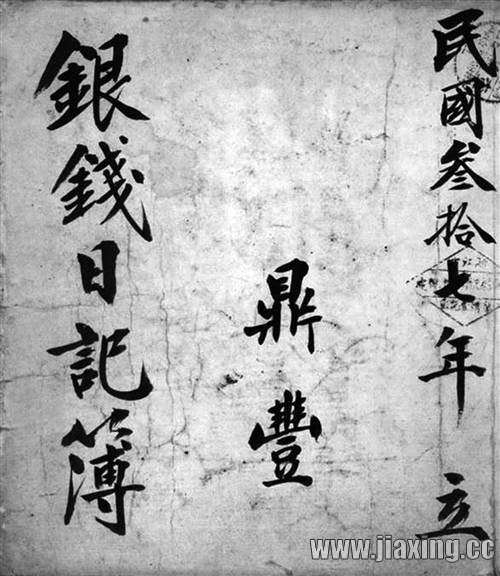 民國叁拾七年 立
鼎豐
銀錢日記簿
www.jiaxing.cc